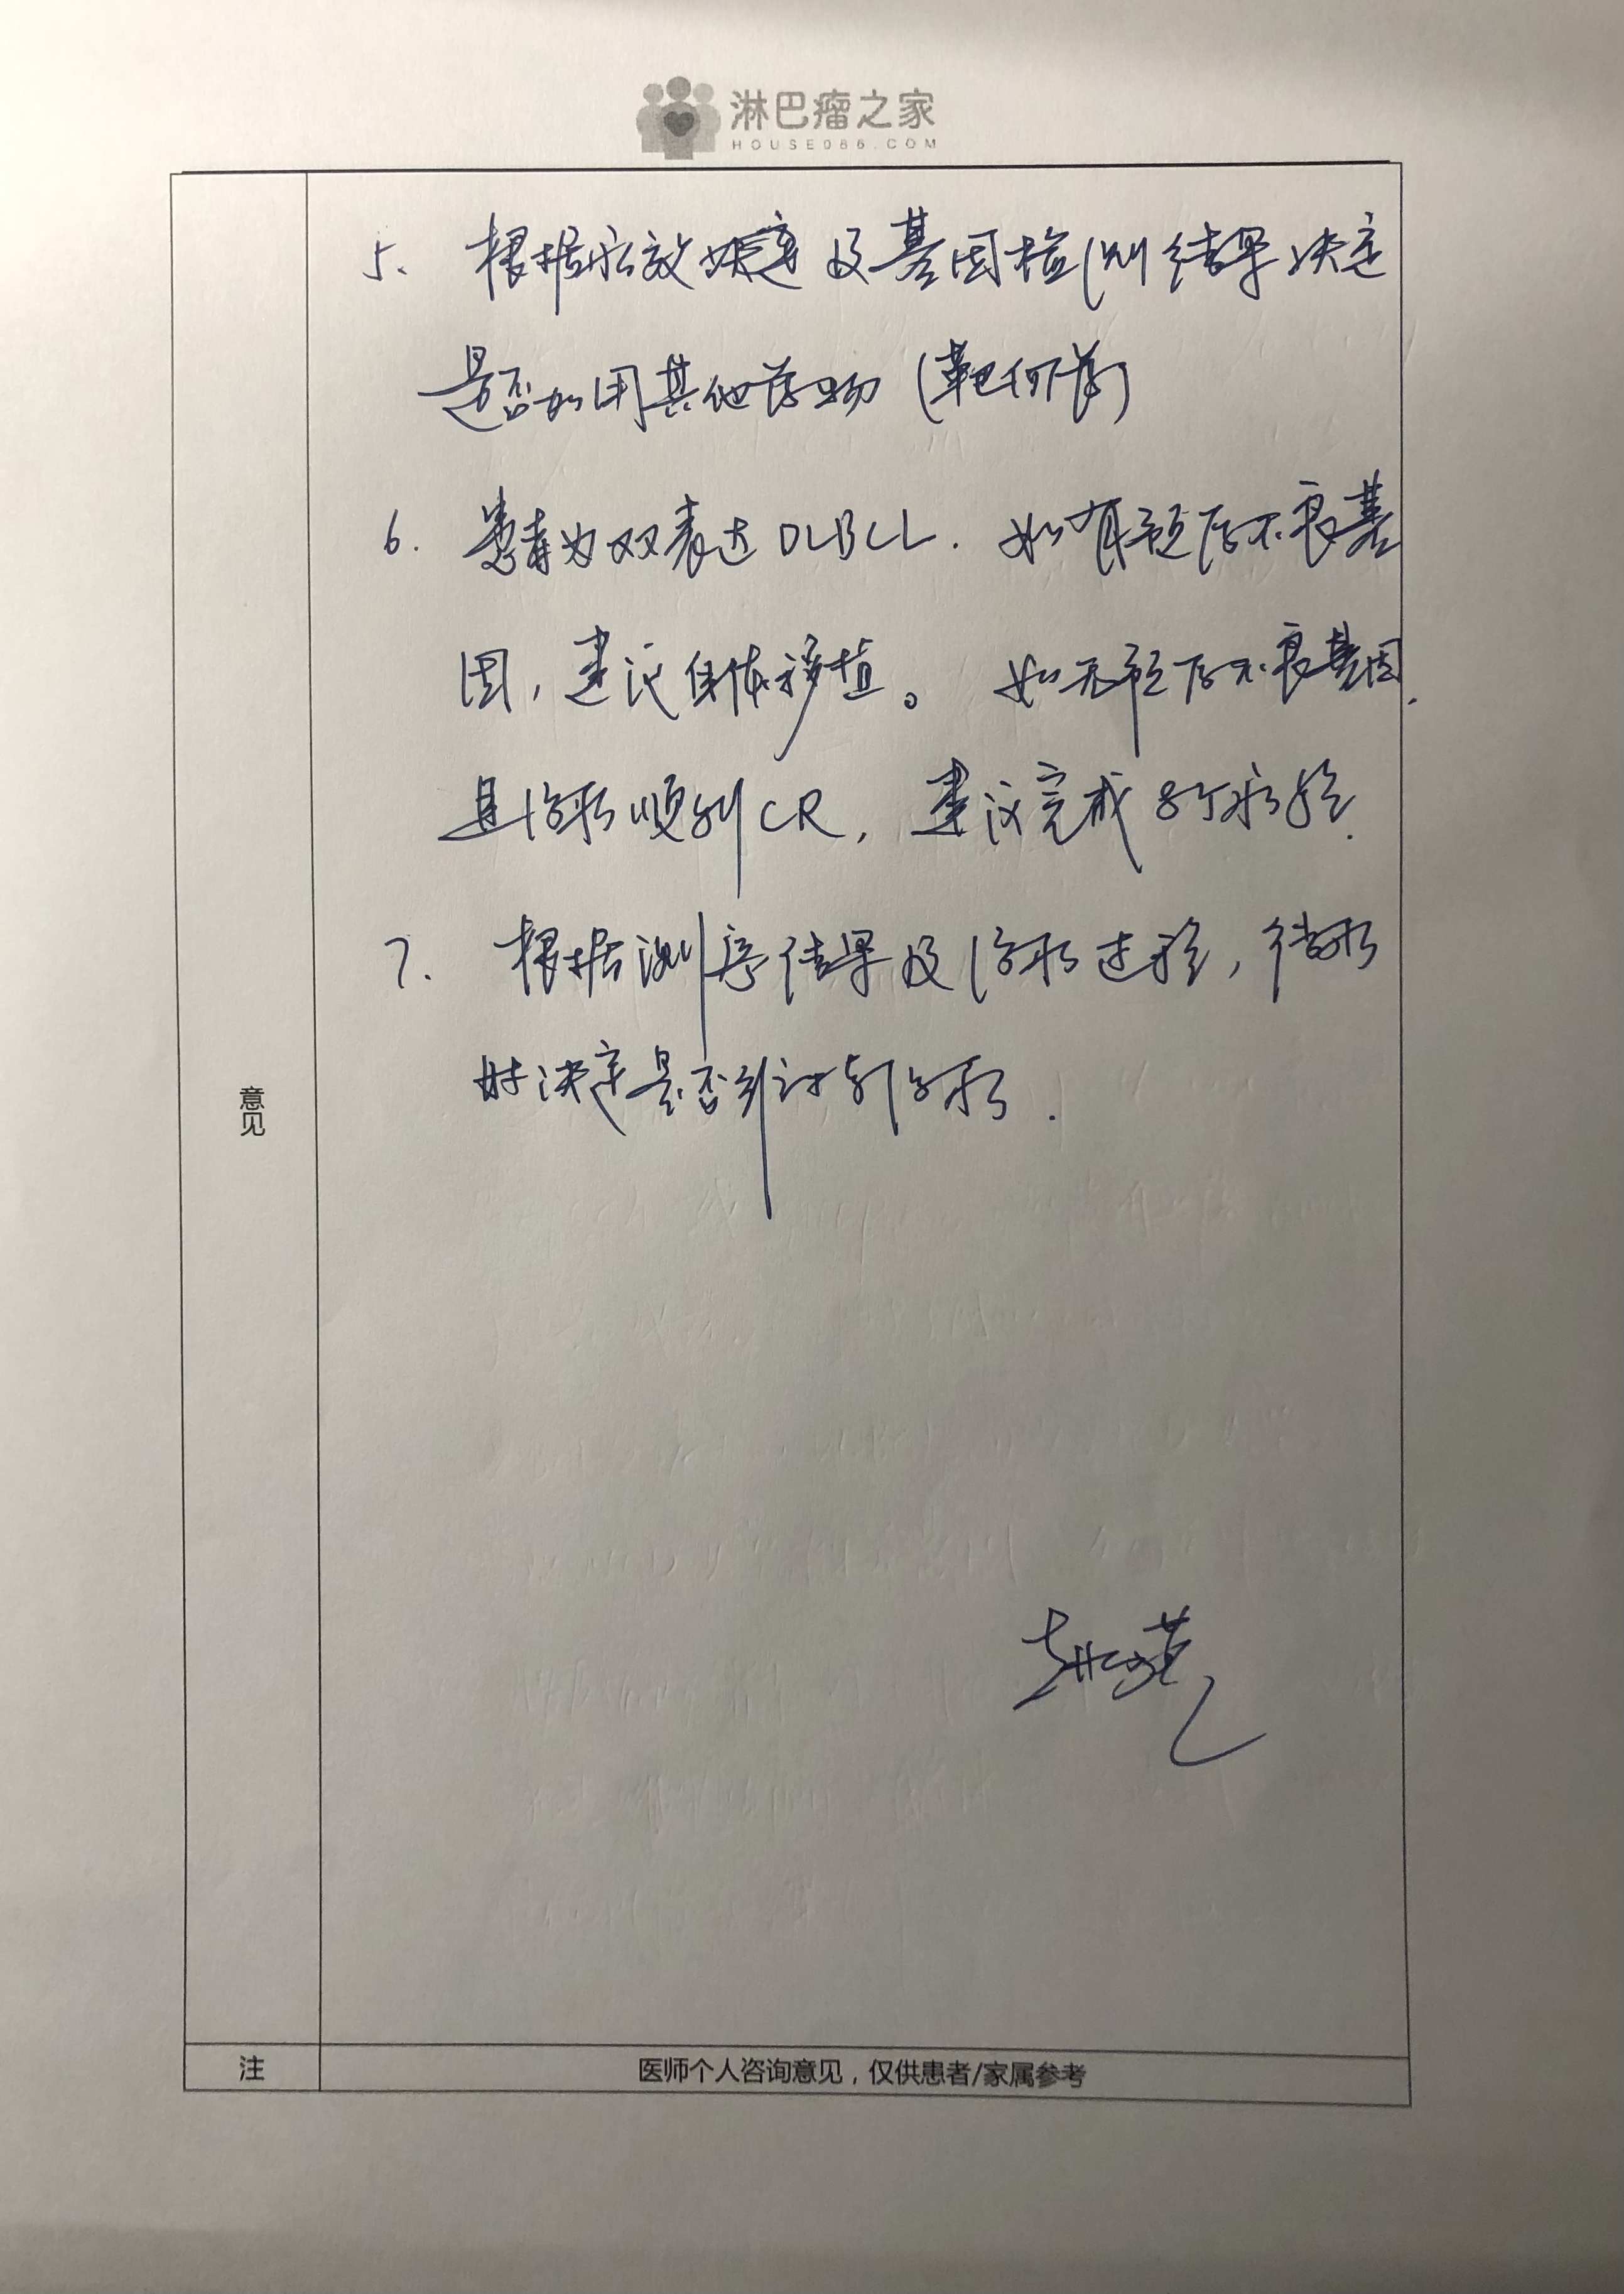 淋巴瘤之家
HOUSE086.COM
5. 根据疗效 及基因检测结果决定
是否加用其他药物(靶向药)
6. 患者为双表达DLBCL. 如有预后不良基
因,建议自体移植。 如无预后不良基因,
且治疗顺利CR, 建议完成8个疗程.
7. 根据测序结果及治疗过程,
时决定是否 治疗.
意见
注
医师个人咨询意见,仅供患者/家属参考